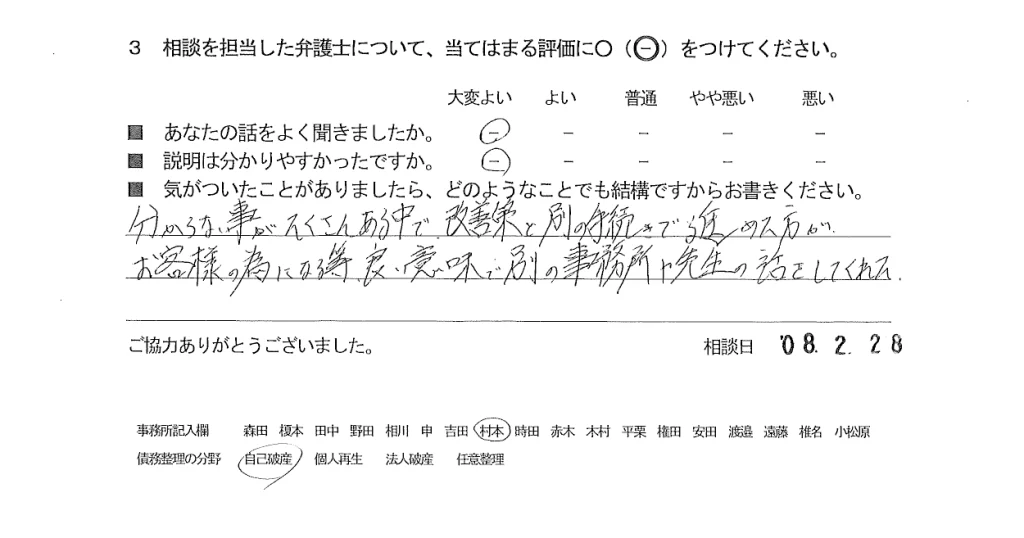 3 相談を担当した弁護士について、当てはまる評価に○(⊖)をつけてください。
大変よい よい 普通 やや悪い 悪い
■ あなたの話をよく聞きましたか。 − − − − −
■ 説明は分かりやすかったですか。 − − − − −
■ 気がついたことがありましたら、どのようなことでも結構ですからお書きください。
分からない事がたくさんある中で、改善策と別の手続きで進めた方が、
お客様の為になる等、良い意味で別の事務所や先生の話をしてくれた.
ご協力ありがとうございました。 相談日 '08.2.28
事務所記入欄 森田 榎本 田中 野田 相川 申 吉田 村本 時田 赤木 木村 平栗 権田 安田 渡邉 遠藤 椎名 小松原
債務整理の分野 自己破産 個人再生 法人破産 任意整理